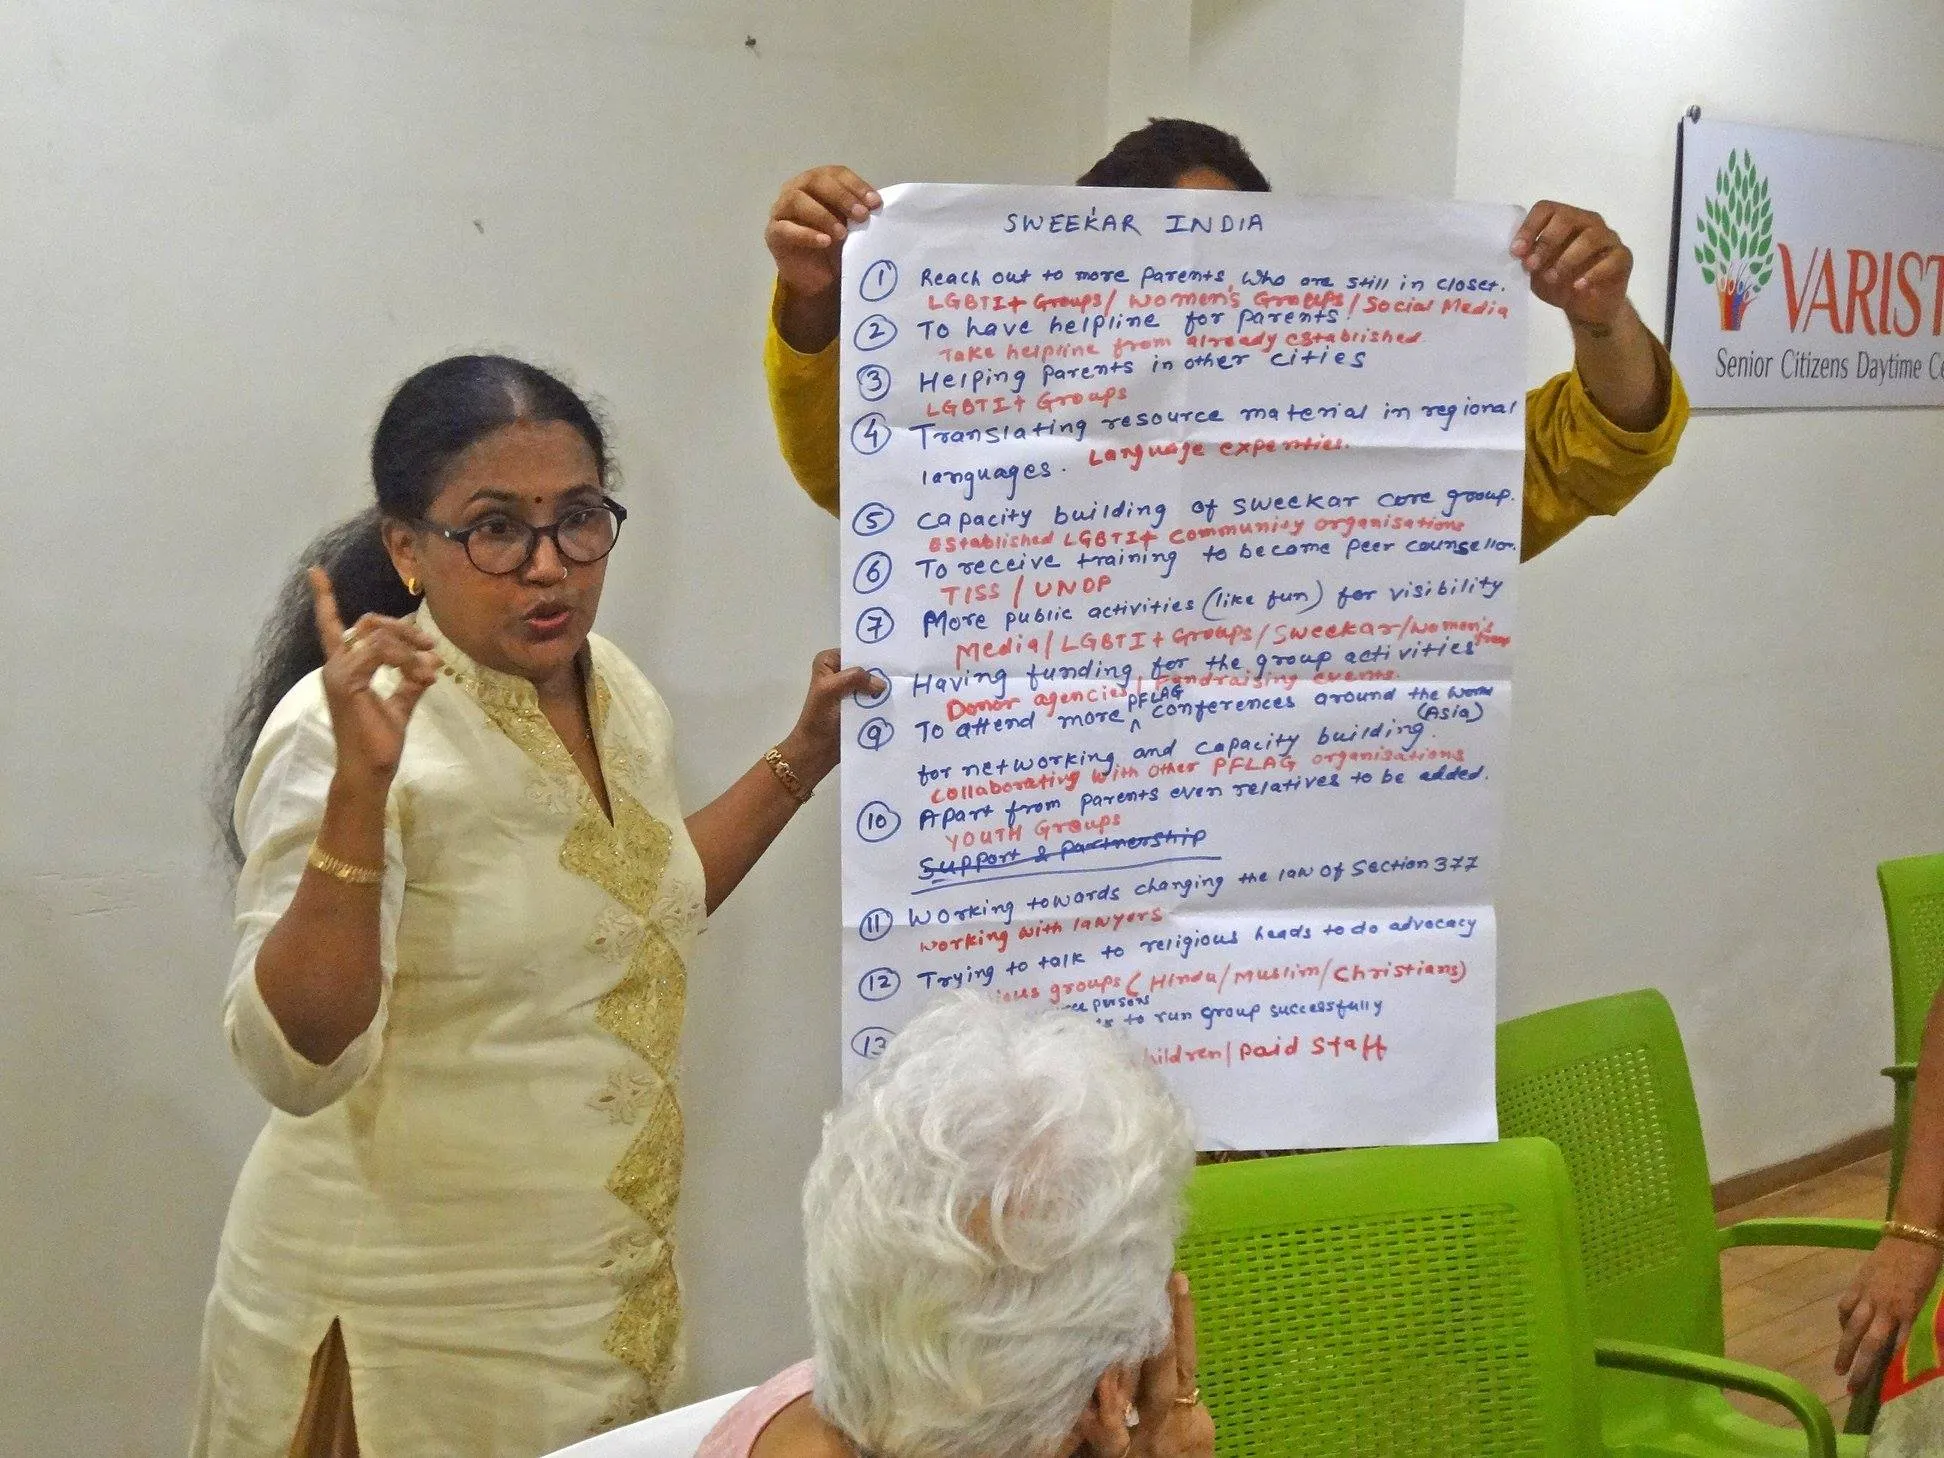 SWEEKAR INDIA
1 Reach out to more Parents, who are still in closet.
LGBTI+ Groups/ Women's Groups/Social Media
2 To have helpline for parents
Take helpline from already established
3 Helping parents in other cities
LGBTI+ Groups
4 Translating resource material in regional
languages.
Language experties.
5 Capacity building of sweekar core group.
Established LGBTI+ community organisations
6 To receive training to become peer counsellor.
TISS / UNDP
7 More public activities (like fun) for visibility
Media/LGBTI+ Groups/Sweekar/Women's
8 Having funding for the group activities
Donor agencies/ Fundraising events.
9 To attend more PFLAG conferences around the world
(Asia)
for networking and capacity building.
Collaborating with other PFLAG organisations
10 Apart from parents even relatives to be added.
YOUTH Groups
Support & Partnership
11 Working towards changing the law of Section 377
Working with lawyers
12 Trying to talk to religious heads to do advocacy
ious groups (Hindu/Muslim/Christians)
persons
13 to run group successfully
hildren/Paid Staff
VARIST
Senior Citizens Daytime Ce